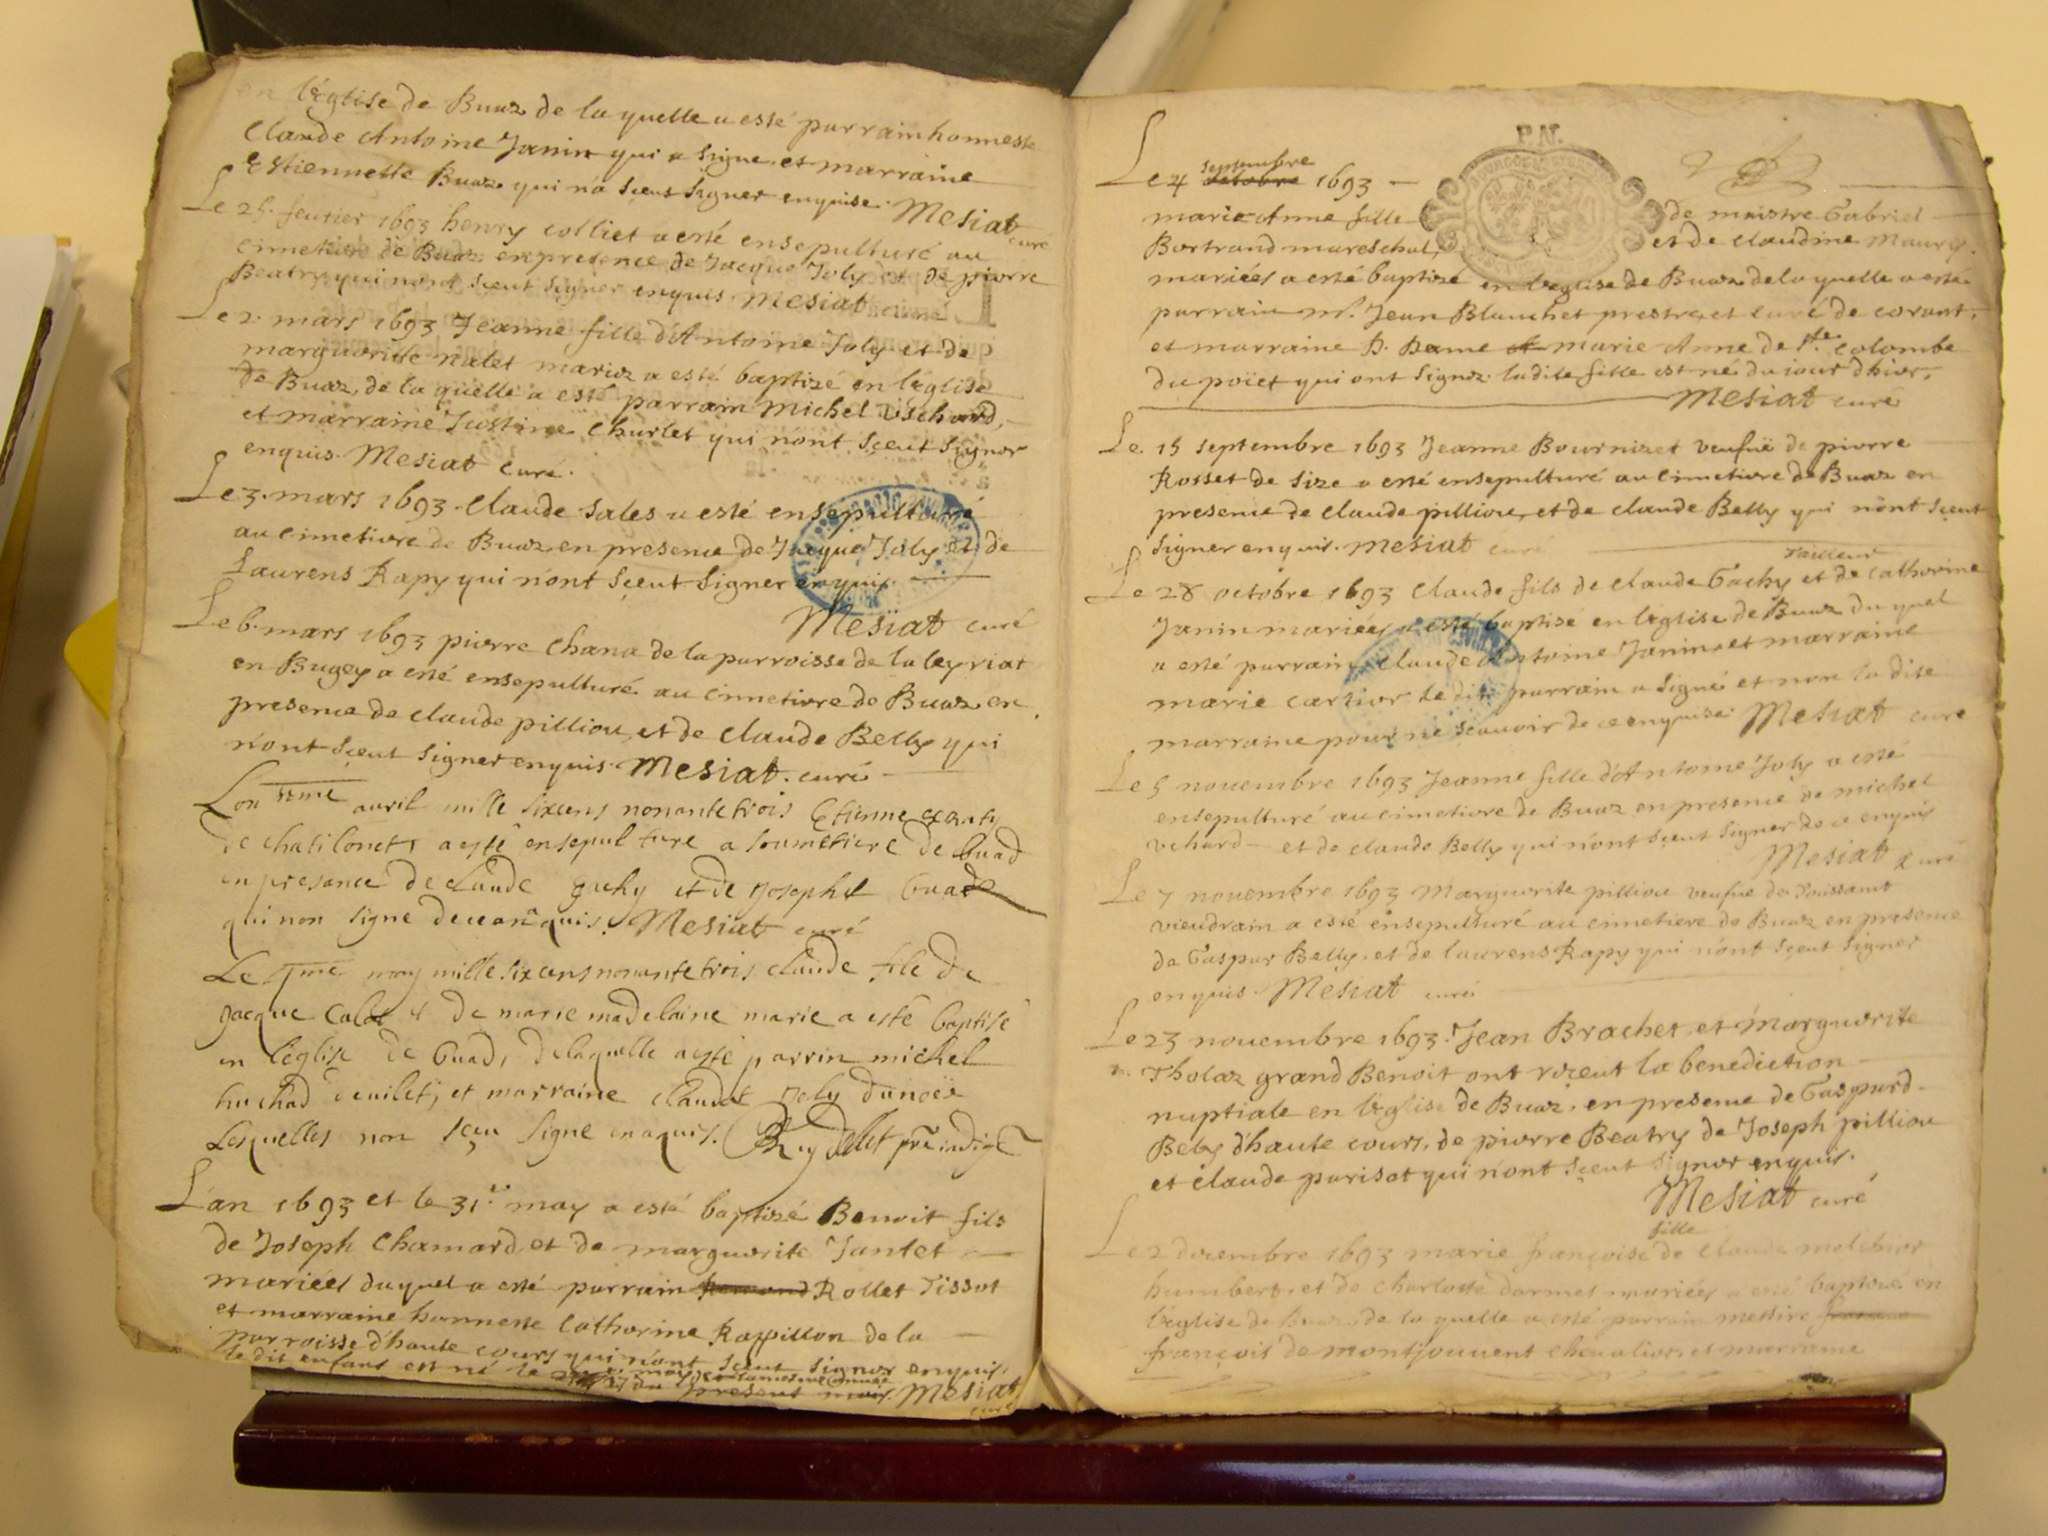 en l'églize de Buaz de la quelle a esté parrain honneste
Claude Antoine Janin qui a signé et marraine
Estiennette Buaz qui n'a sçeut signer enquise. Mesiat curé
Le 25. feurier 1693 henry colliet a esté ensepulturé au
cimetiere de Buaz en presence de Jacque Joly et de pierre
Beatry qui n'ont sçeut signer enquis Mesiat curé
Le 2. mars 1693 Jeanne fille d'Antoine Joly et de
marguerite nalet mariez a esté baptizé en l'églize
de Buaz, de la quelle a esté parrain michel Vschard,
et marraine Justine Charlet qui n'ont sçeut signer
enquis. Mesiat curé.
Le 3. mars 1693. Claude Sales a esté ensepulturé
au cimetiere de Buaz en presence de Jacque Joly et de
Laurens Rapy qui n'ont sçeut signer enquis.
Mesiat curé
Le 6. mars 1693 pierre Chana de la parroisse de la leyriat
en Bugey a esté ensepulturé au cimetiere de Buaz en
presence de claude pilliou, et de claude Belly qui
n'ont sçeut signer enquis. Mesiat. curé
auril mille sixcens nonante trois Etienne
de chatilonet a esté ensepulture a soumetiere de buad
en presance de claude guhy et de Joseph buad
qui non signe Mesiat curé
Le may mille sixcens nonante trois claude file de
Jacque Calat et de marie madelaine marie a esté baptisé
en l'églize de buad, de laquelle a esté parrin michel
huchad et marraine claudat Joly
Lesquelles non sçeu signe enaquis.
L'an 1693 et le 31. may a esté baptizé Benoit fils
de Joseph Chamard, et de marguerite Jantet
mariées duquel a esté parrain Rollet Tissot
et marraine honneste Catherine Rappillon de la
parroisse d'haute cours qui n'ont sçeut signer enquis.
le dit enfant est né le
du present mois. Mesiat
curé
P.N.
septembre
Le 4 octobre 1693
marie Anne fille de maistre Gabriel
Bertrand mareschal, et de claudine Maury.
mariées a esté baptizé en l'églize de Buaz de la quelle a esté
parrain mr. Jean Blanchet prestre, et curé de corant,
et marraine D. Dame marie Anne de Ste. colombe
du poïet qui ont signez. ladite fille est né du iour d'hier,
Mesiat curé
Le. 15 septembre 1693 Jeanne Bournizet veufue de pierre
Rosset de Size a esté ensepulturé au cimetiere de Buaz en
presence de claude pilliou, et de claude Belly qui n'ont sçeut
signer enquis. mesiat curé
tailleur
Le 28 octobre 1693 Claude fils de claude Gachy et de catherine
Janin mariées a esté baptisé en l'églize de Buaz du quel
a esté parrain claude Antoine Janin et marraine
marie cartier le dit parrain a signé et non la dite
marraine pour ne sçauoir de ce enquise. Mesiat curé
Le 5 nouembre 1693 Jeanne fille d'Antoine Joly a esté
ensepulturé au cimetiere de Buaz en presence de michel
vchard et de claude Belly qui n'ont sçeut signer de ce enquis
Mesiat curé
Le 7 nouembre 1693 Marguerite pilliou veufue de Toussaint
vieudrain a esté ensepulturé au cimetiere de Buaz en presence
de Gaspar Belly, et de laurens Rapy qui n'ont sçeut signer
enquis. Mesiat curé
Le 23 nouembre 1693. Jean Brachet, et marguerite
Tholaz grand Benoit ont reçeut la benediction
nuptiale en l'églize de Buaz, en presence de Gaspard
Bely d'haute cours, de pierre Beatry de Joseph pilliou
et claude parisat qui n'ont sçeut signer enquis.
Mesiat curé
fille
Le 2 decembre 1693 marie françoise de claude melchior
humbert, et de charlotte darmes mariées a esté baptizé en
l'églize de Buaz, de la quelle a esté parrain messire
françois de montjouuent cheualier, et marraine